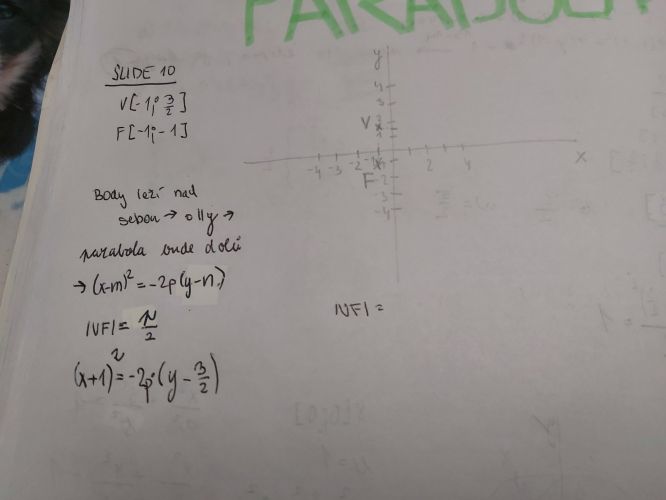 PARABOLY
SLIDE 10
V[-1; 3/2]
F[-1; -1]
Body leží nad
sebou → o||y →
parabola bude dolů
→ (x-m)² = -2p(y-n)
|VF| = p/2
(x+1)² = -2p·(y - 3/2)
y
4
3
2
1
V
-4 -3 -2 -1 2 4 x
F
-2
-3
-4
|VF| =